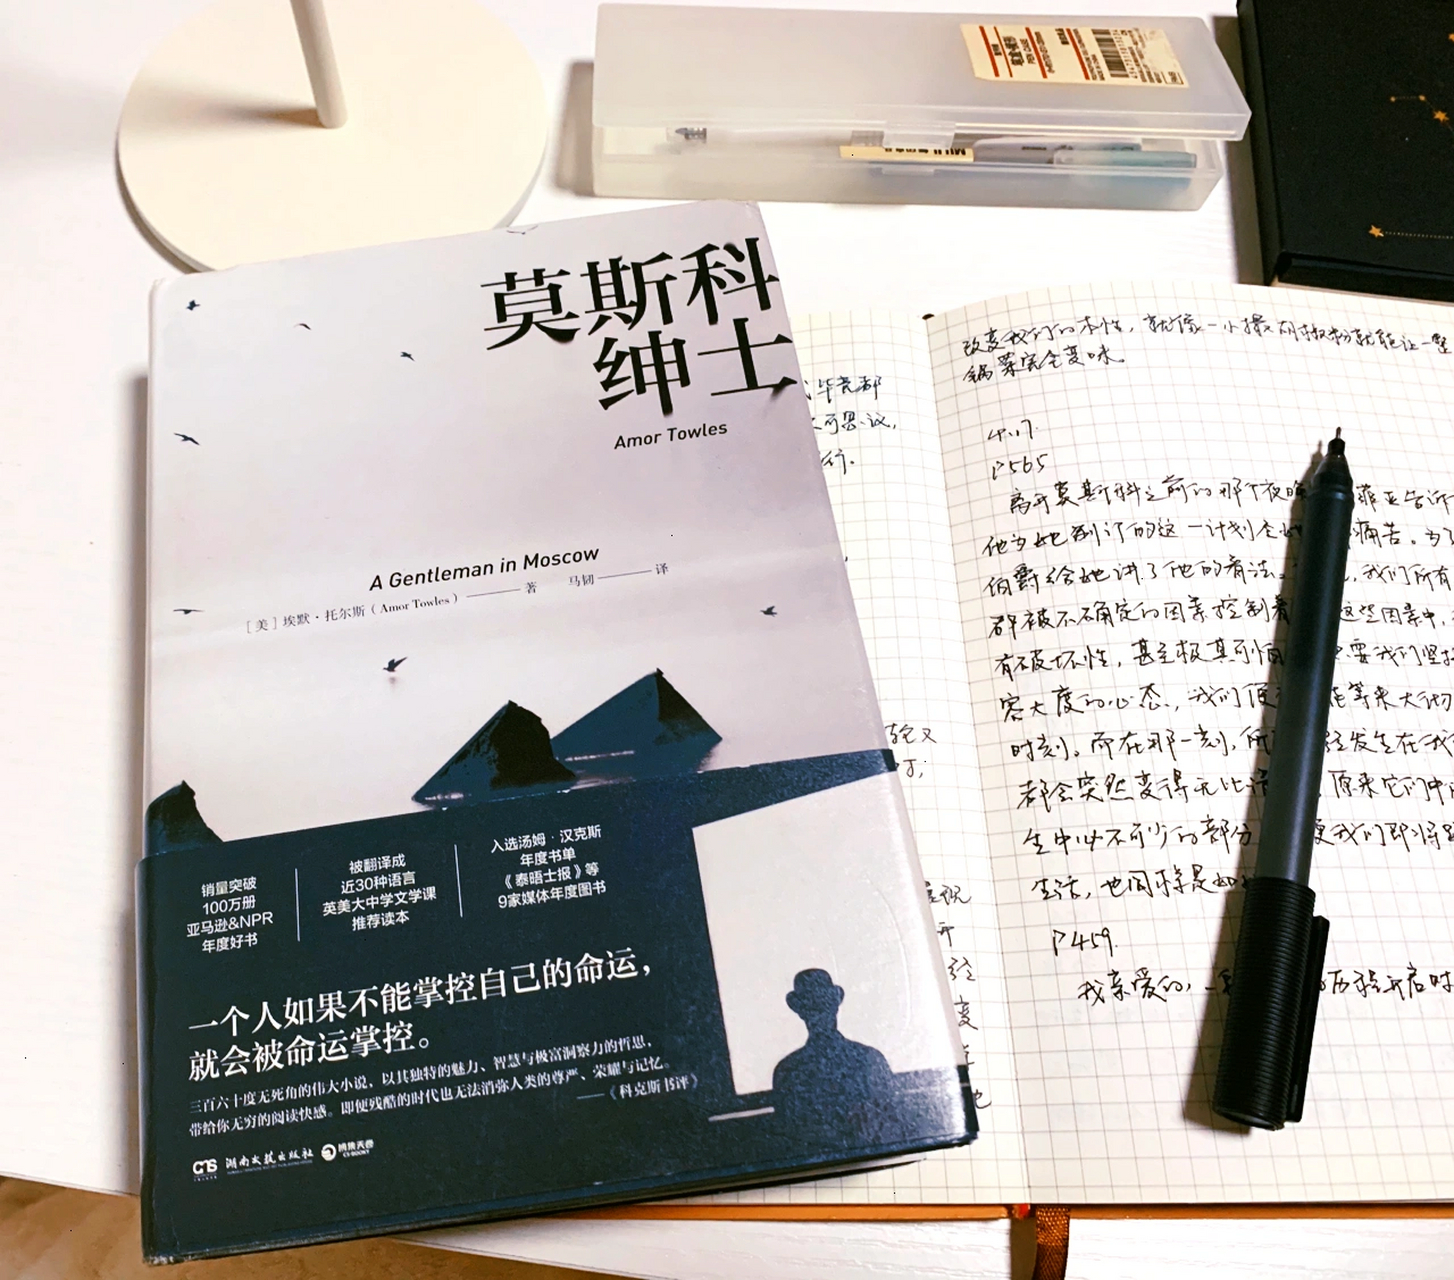 莫斯科
绅士
Amor Towles
A Gentleman in Moscow
［美］埃默·托尔斯（Amor Towles）——— 著 马韧——— 译
销量突破
100万册
亚马逊&NPR
年度好书
被翻译成
近30种语言
英美大中学文学课
推荐读本
入选汤姆·汉克斯
年度书单
《泰晤士报》等
9家媒体年度图书
一个人如果不能掌控自己的命运，
就会被命运掌控。
三百六十度无死角的伟大小说，以其独特的魅力、智慧与极富洞察力的哲思，
带给你无穷的阅读快感。即使残酷的时代也无法消弥人类的尊严、荣耀与记忆。
——《科克斯书评》
湖南文艺出版社
博集天卷
CS-BOOKY
PEN CASE
MUJI
毕竟都
可思议，
行.
改变我们的本性，就像一小撮胡椒粉就能让一整
锅菜完全变味。
4.17.
P565
离开莫斯科之前的那个夜晚 菲亚告诉
他为她制订的这一计划令她 痛苦。为了
伯爵给她讲了他的看法。 ，我们所有
都被不确定的因素控制着 这些因素中，
有破坏性，甚至极其可怕 要我们坚持
容大度的心态，我们便 能等来大彻
时刻。而在那一刻，所 发生在我
都会突然变得无比清 原来它们中
生中必不可少的部分 我们即将
生活，也同样是如
P459.
我亲爱的，一 历程开启时